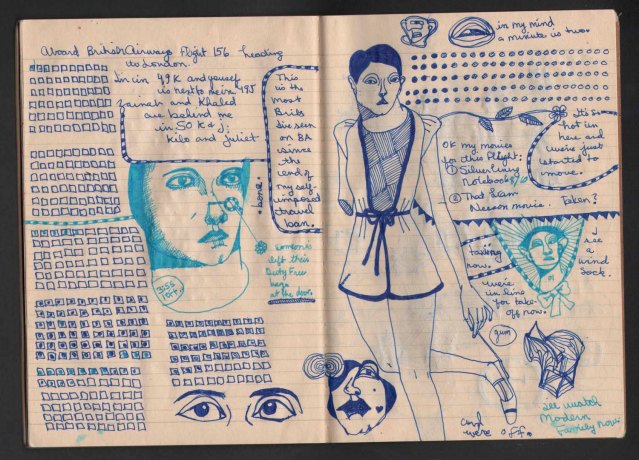 Aboard British Airways flight 156 heading
to London.
I'm in 49K and yousef
is next to me in 49J
Zainab and Khaled
are behind me
in 50 K & J:
Kilo and Juliet.
This
is the
most
Brits
I've seen
on BA
since
the
end of
my self
imposed
travel
ban.
.bone.
someone
left their
Duty Free
bag
at the door.
3:55
in my mind
a minute is two.
OK my movies
for this flight:
① Silver Lining
Notebook
② That Liam
Neeson movie. Taken?
It's so
hot in
here and
we've just
started to
move.
taxiing
now.
we're
in line
for take-
off now.
I
see
a
wind
sock.
gum
and
we're off.
ill watch
Modern
Family now